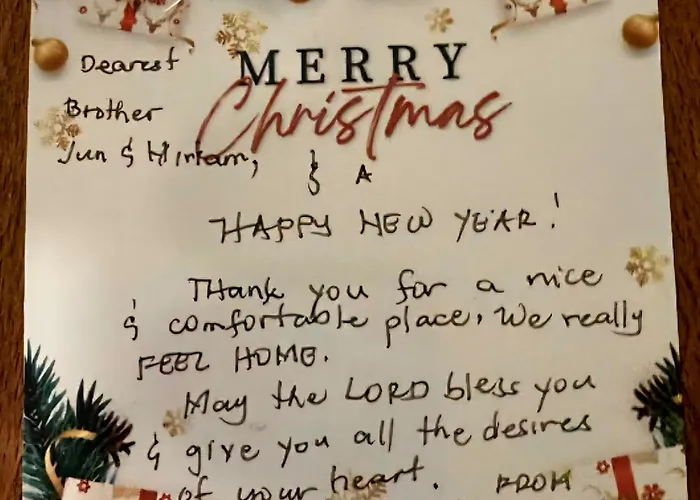 MERRY
Christmas
Dearest
Brother
Jun & Miriam,
& A
HAPPY NEW YEAR!
THank you for a nice
& comfortable place, We really
FEEL HOME.
May the LORD bless you
& give you all the desires
of your heart. FROM